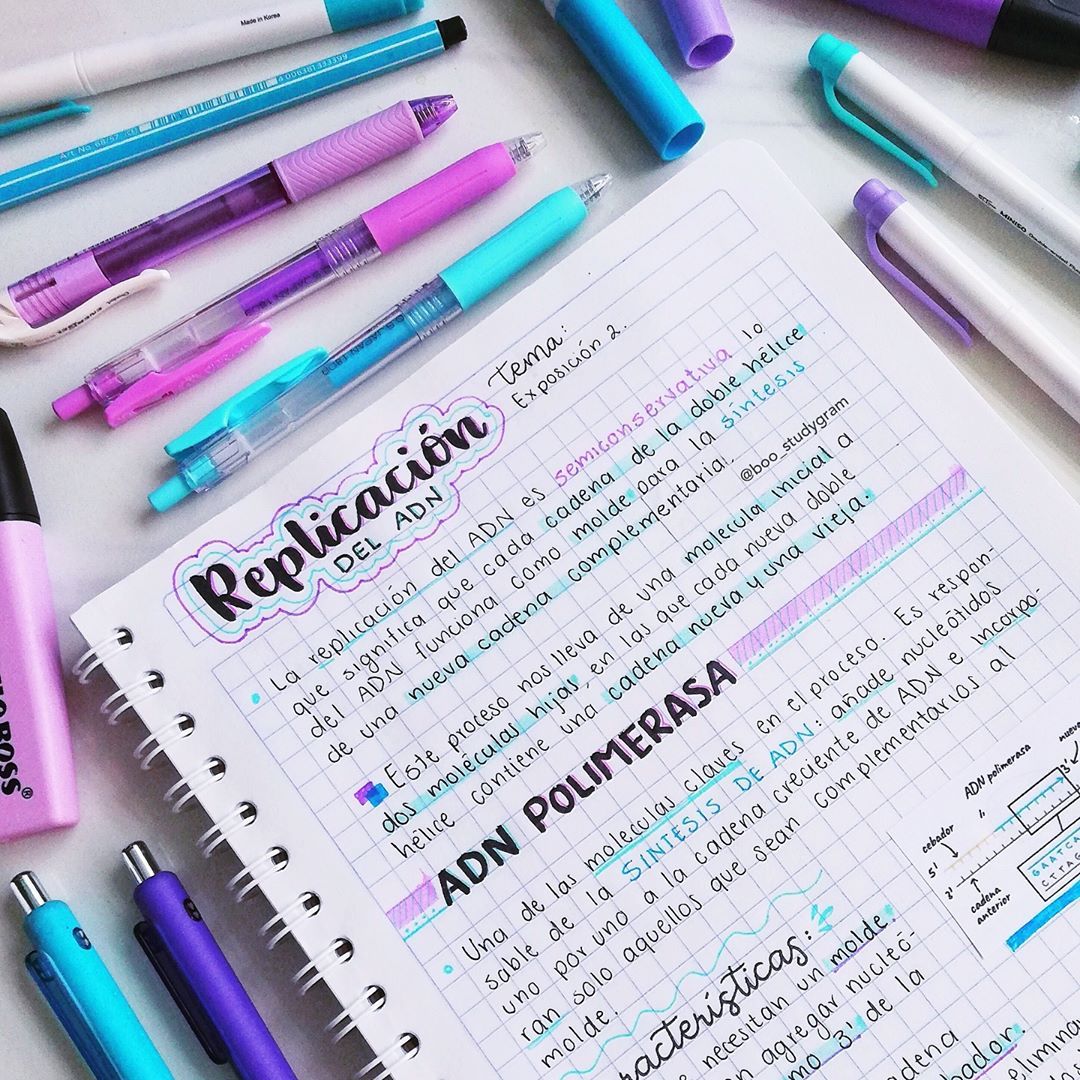 Made in Korea
Art. No. 68/57
4006381333399
tema:
Exposición 2.
Replicación
DEL ADN
La replicación del ADN es semiconservativa lo
que significa que cada cadena de la doble hélice
del ADN funciona como molde para la síntesis
de una nueva cadena complementaria.
@boo_studygram
Este proceso nos lleva de una molécula inicial a
dos moléculas hijas, en las que cada nueva doble
hélice contiene una cadena nueva y una vieja.
ADN POLIMERASA
Una de las moléculas claves en el proceso. Es respon-
sable de la SÍNTESIS DE ADN: añade nucleótidos
uno por uno a la cadena creciente de ADN e incorpo-
ran solo aquellos que sean complementarios al
molde.
ADN polimerasa
cebador
5'
3'
3'
cadena
anterior
GAATCA
CTTAG
racterísticas:
necesitan un molde.
agregar nucleó-
3' de la
cadena
MINISO
BOSS®